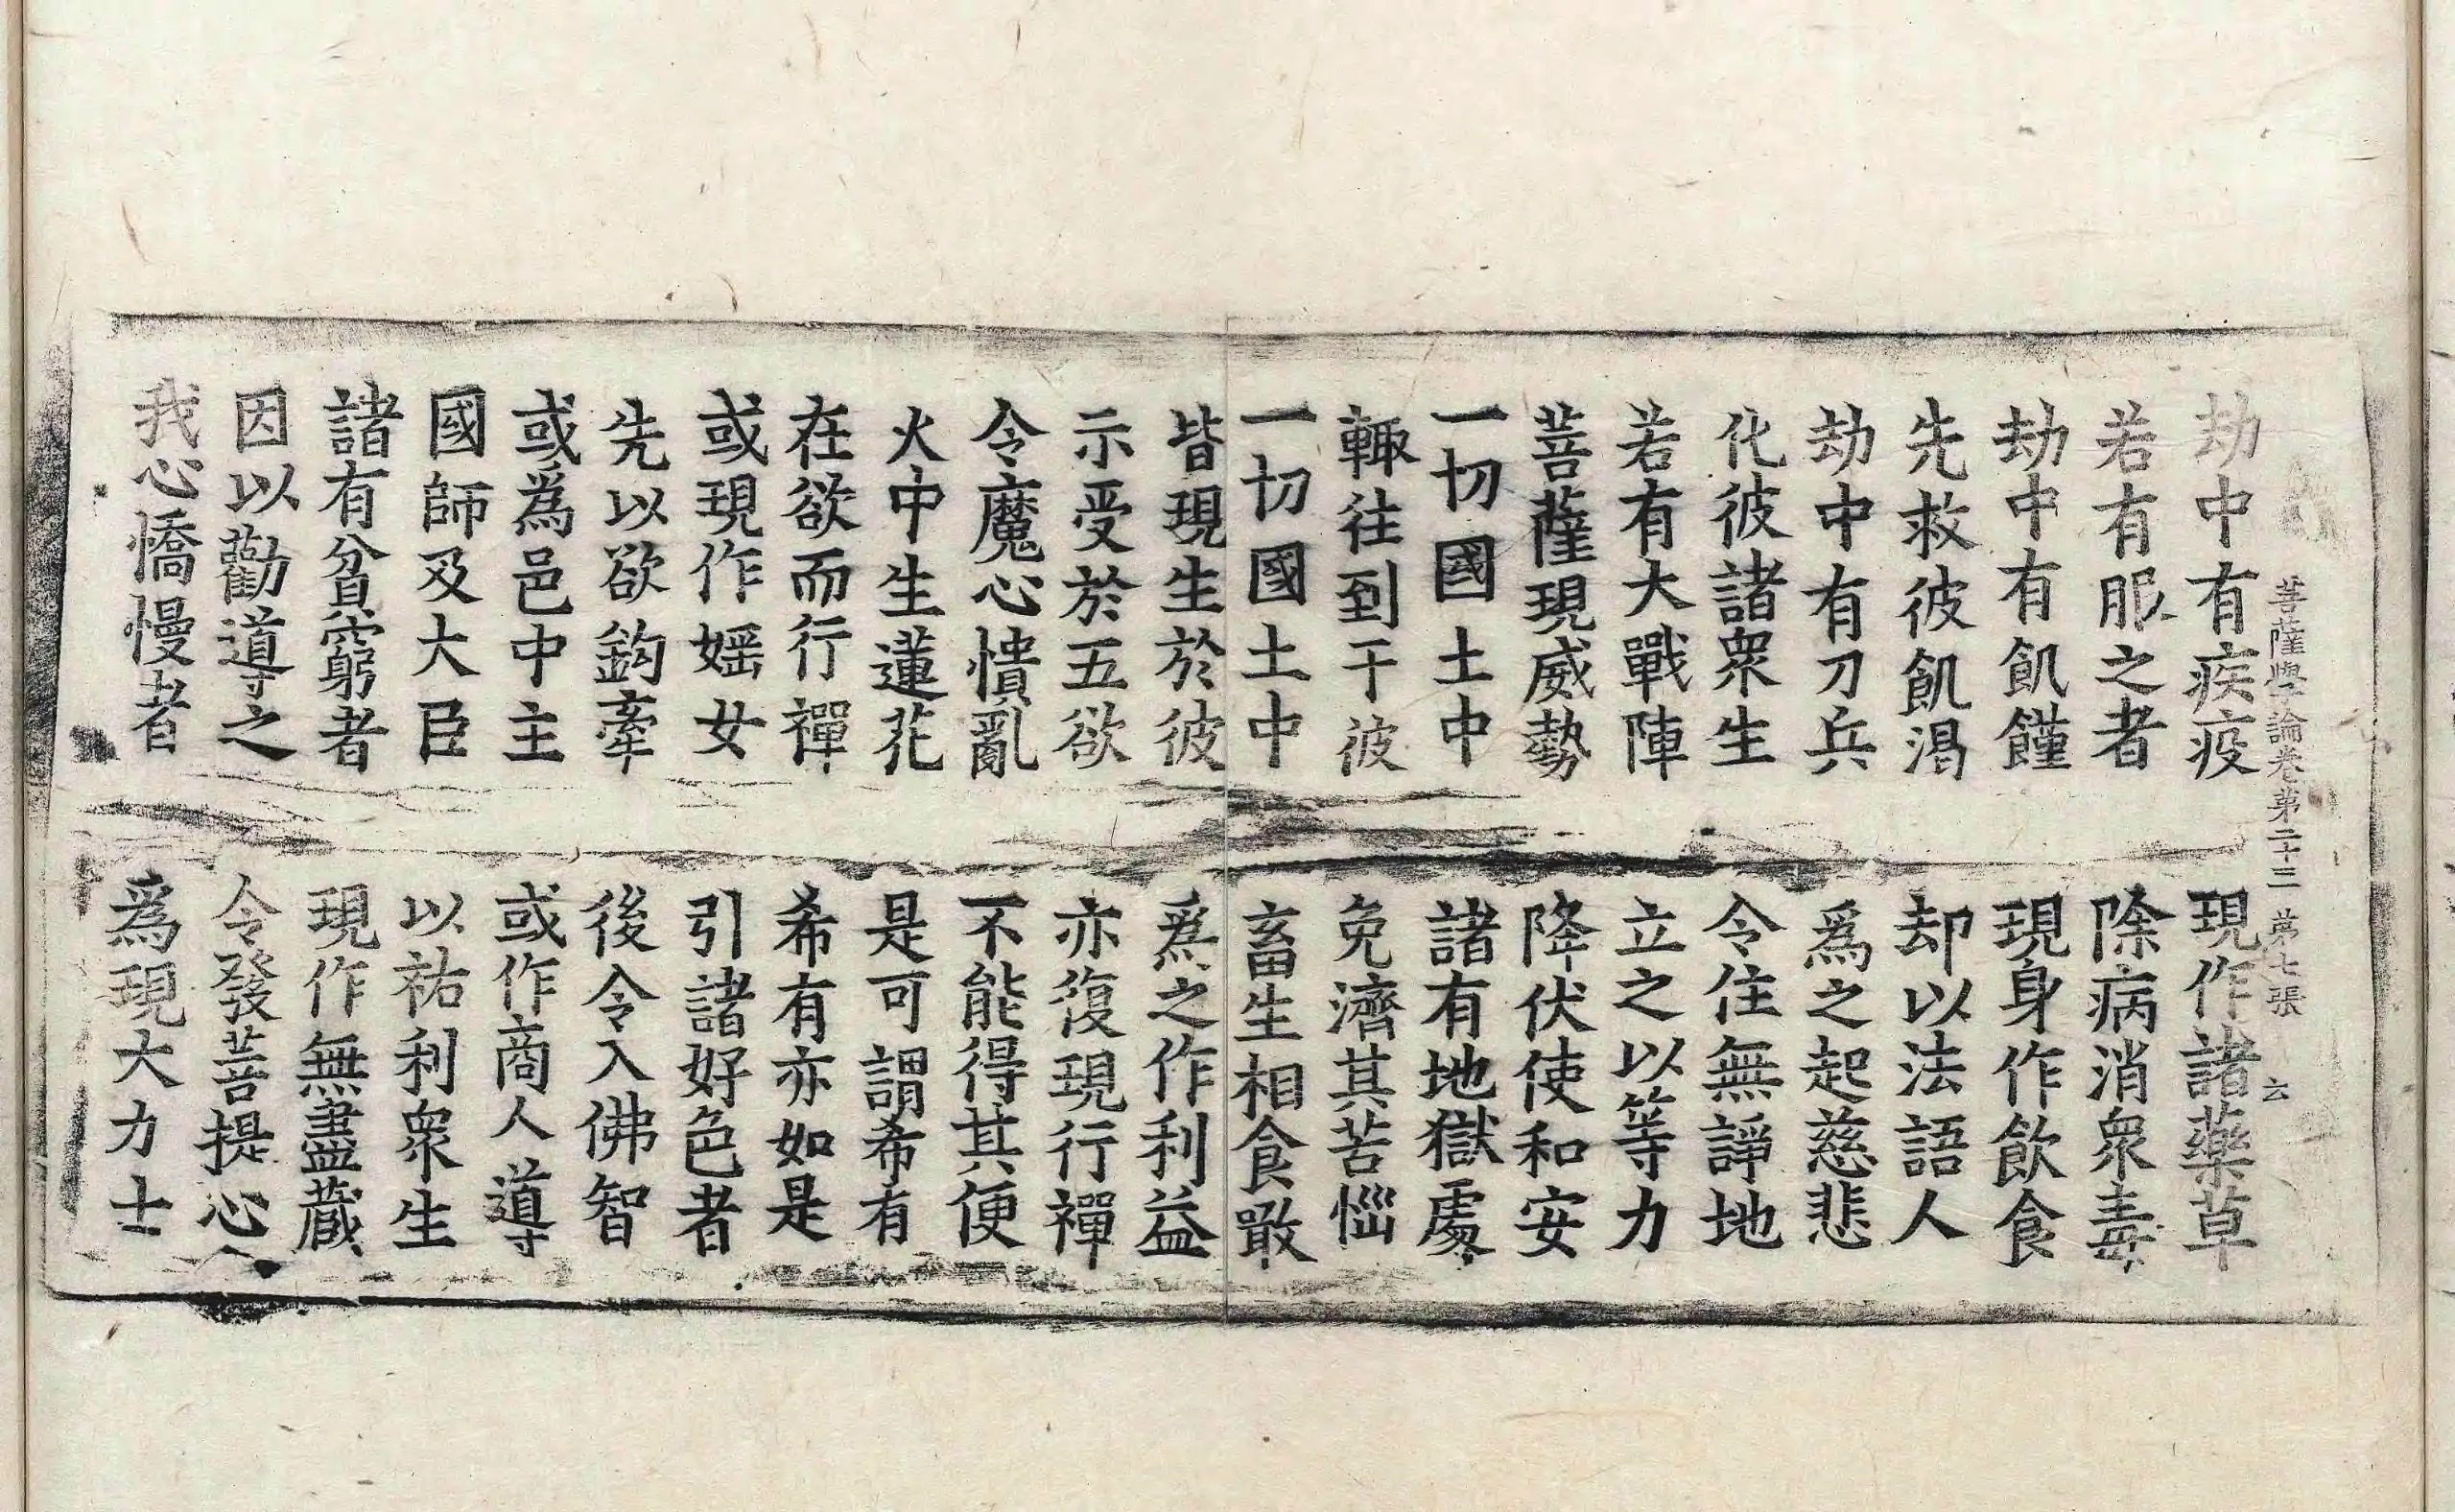 菩薩學論卷第二十三 第七張 云
劫中有疾疫 現作諸藥草
若有服之者 除病消衆毒
劫中有飢饉 現身作飲食
先救彼飢渴 却以法語人
劫中有刀兵 爲之起慈悲
化彼諸衆生 令住無諍地
若有大戰陣 立之以等力
菩薩現威勢 降伏使和安
一切國土中 諸有地獄處
輙往到于彼 免濟其苦惱
一切國土中 畜生相食噉
皆現生於彼 爲之作利益
示受於五欲 亦復現行禪
令魔心憒亂 不能得其便
火中生蓮花 是可謂希有
在欲而行禪 希有亦如是
或現作婬女 引諸好色者
先以欲鈎牽 後令入佛智
或爲邑中主 或作商人導
國師及大臣 以祐利衆生
諸有貧窮者 現作無盡藏
因以勸導之 令發菩提心
我心憍慢者 爲現大力士